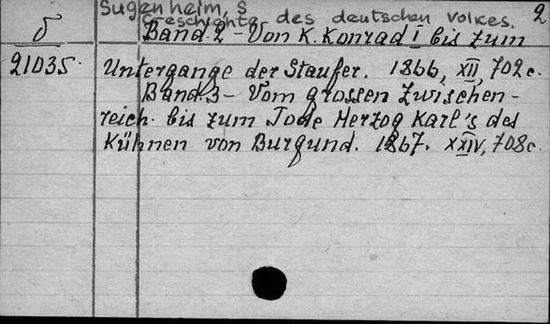 Sugenheim, S 2
Geschichte des deutschen Volkes.
δ Band 2 - Von K. Konrad I bis zum
21035. Untergange der Staufer. 1866, XII, 702 c.
Band 3 - Vom grossen Zwischen-
reich bis zum Tode Herzog Karl's des
Kühnen von Burgund. 1867. XXIV, 708 c.